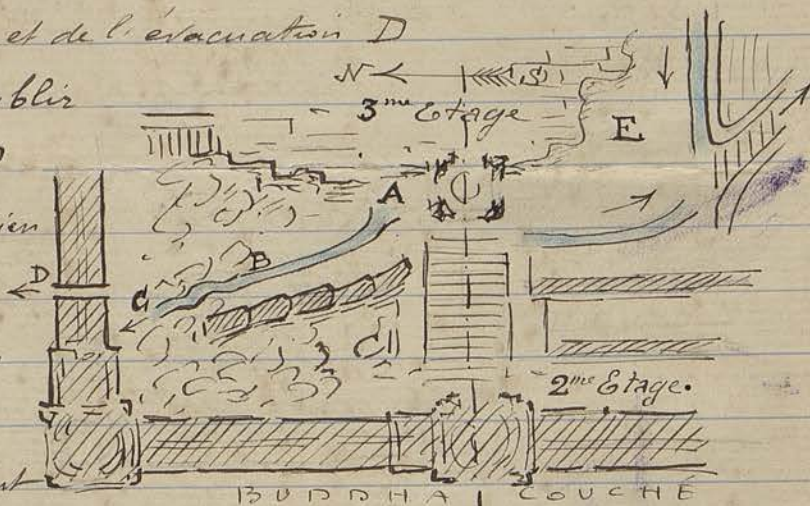 et de l'évacuation D
blir
N S
3me Etage
E
A
ien
B
D
C
2me Etage.
BUDDHA COUCHÉ